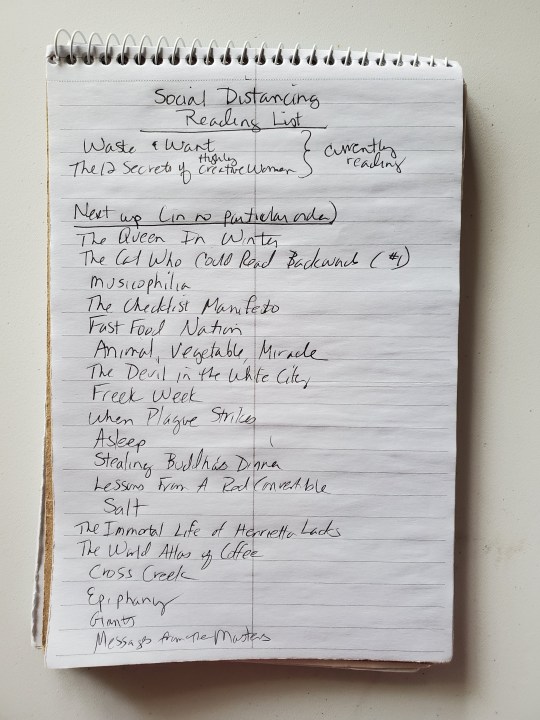 Social Distancing
Reading List
Waste & Want } currently
The 12 Secrets of Highly Creative Women } reading
Next up (in no particular order)
The Queen In Winter
The Cat Who Could Read Backwards (#1)
Musicophilia
The Checklist Manifesto
Fast Food Nation
Animal, Vegetable, Miracle
The Devil in the White City
Freek Week
When Plague Strikes
Asleep
Stealing Buddha's Dinner
Lessons From A Red Convertible
Salt
The Immortal Life of Henrietta Lacks
The World Atlas of Coffee
Cross Creek
Epiphany
Giants
Messages from the Masters